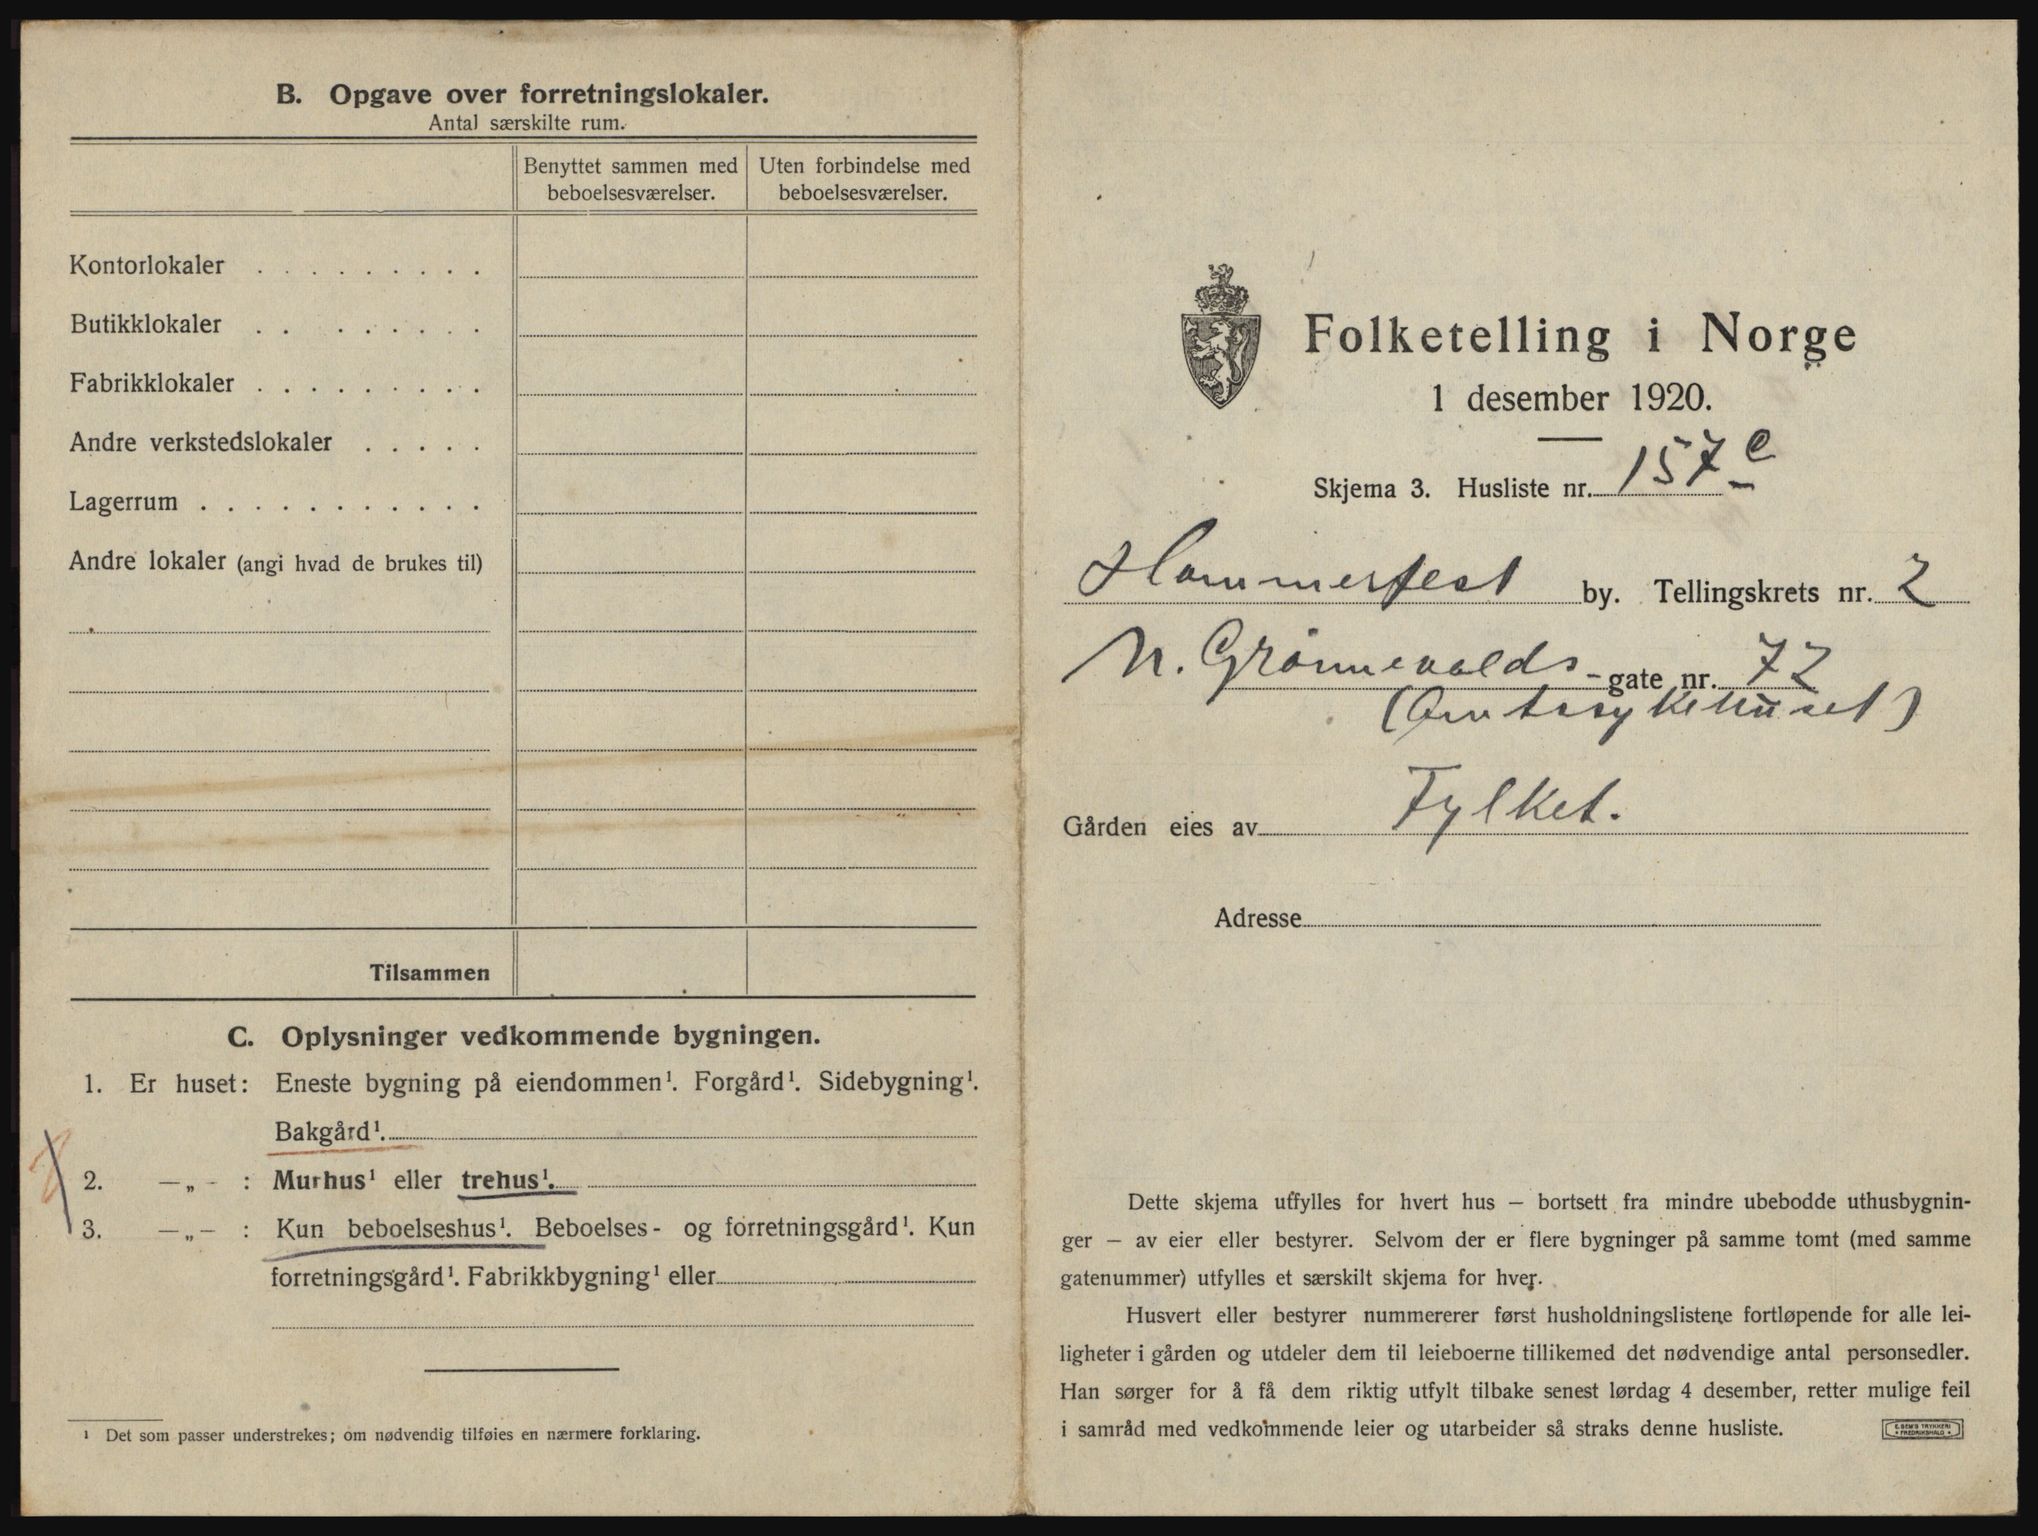 B. Opgave over forretningslokaler.
Antal særskilte rum.
Benyttet sammen med beboelsesværelser.
Uten forbindelse med beboelsesværelser.
Kontorlokaler . . . . . . . . .
Butikklokaler . . . . . . . .
Fabrikklokaler . . . . . . . . .
Andre verkstedslokaler . . . . .
Lagerrum . . . . . . . . . . .
Andre lokaler (angi hvad de brukes til)
Tilsammen
C. Oplysninger vedkommende bygningen.
1. Er huset: Eneste bygning på eiendommen¹. Forgård¹. Sidebygning¹.
Bakgård¹.
2. —„- : Murhus¹ eller trehus¹.
3. —„— : Kun beboelseshus¹. Beboelses- og forretningsgård¹. Kun
forretningsgård¹. Fabrikkbygning¹ eller
¹ Det som passer understrekes; om nødvendig tilføies en nærmere forklaring.
Folketelling i Norge
1 desember 1920.
Skjema 3. Husliste nr. 157 c
Hammerfest by. Tellingskrets nr. 2
N. Grønnevolds-gate nr. 72
(Amtssykehuset)
Gården eies av Fylket.
Adresse
Dette skjema utfylles for hvert hus — bortsett fra mindre ubebodde uthusbygnin-
ger — av eier eller bestyrer. Selvom der er flere bygninger på samme tomt (med samme
gatenummer) utfylles et særskilt skjema for hver.
Husvert eller bestyrer nummererer først husholdningslistene fortløpende for alle lei-
ligheter i gården og utdeler dem til leieboerne tillikemed det nødvendige antal personsedler.
Han sørger for å få dem riktig utfylt tilbake senest lørdag 4 desember, retter mulige feil
i samråd med vedkommende leier og utarbeider så straks denne husliste.
E. SEM'S TRYKKERI
• FREDRIKSHALD •